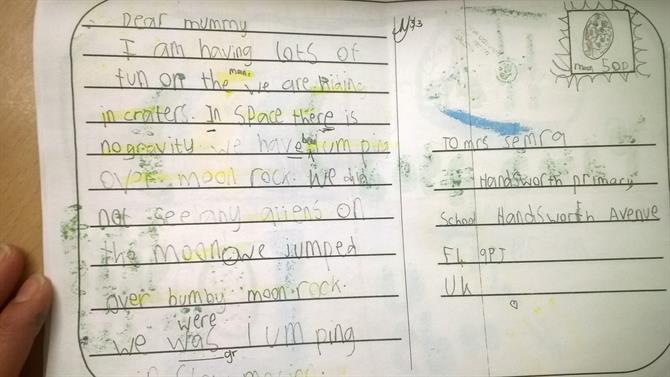 Dear mummy
I am having lots of
fun on the moon. we are hiding
in craters. In space there is
no gravity we have been jumping
over moon rock. We did
not see any aliens on
the moon we jumped
over bumby moon rock.
were
we was jumping
gr
moon 50p
To mrs semra
Handsworth primary
School Handsworth Avenue
UK